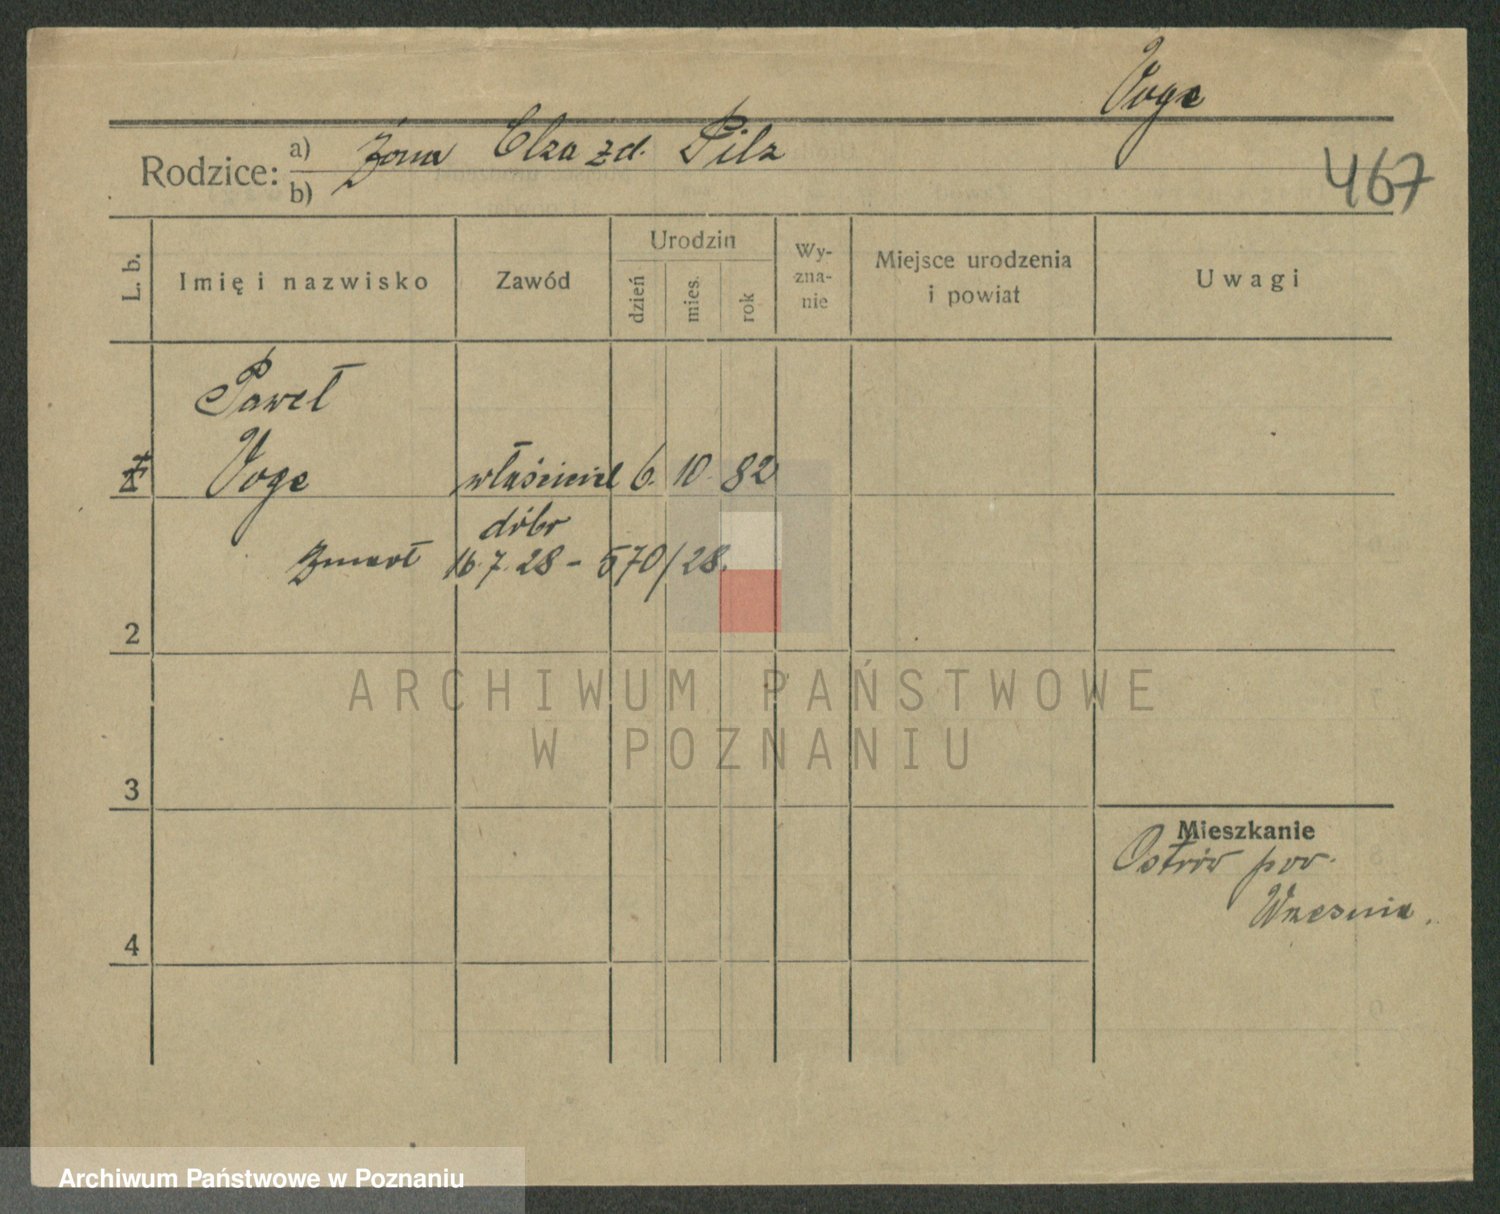 Voge
Rodzice: a) żona Elza zd. Pilz
b)
467
L. b.
Imię i nazwisko
Zawód
Urodzin
dzień
mies.
rok
Wy-
zna-
nie
Miejsce urodzenia
i powiat
Uwagi
Paweł
Voge właściciel 6. 10. 82
dóbr
Zmarł 16.7.28 - 570/28.
2
3
4
Mieszkanie
Ostrów pow.
Września.
ARCHIWUM PAŃSTWOWE
W POZNANIU
Archiwum Państwowe w Poznaniu